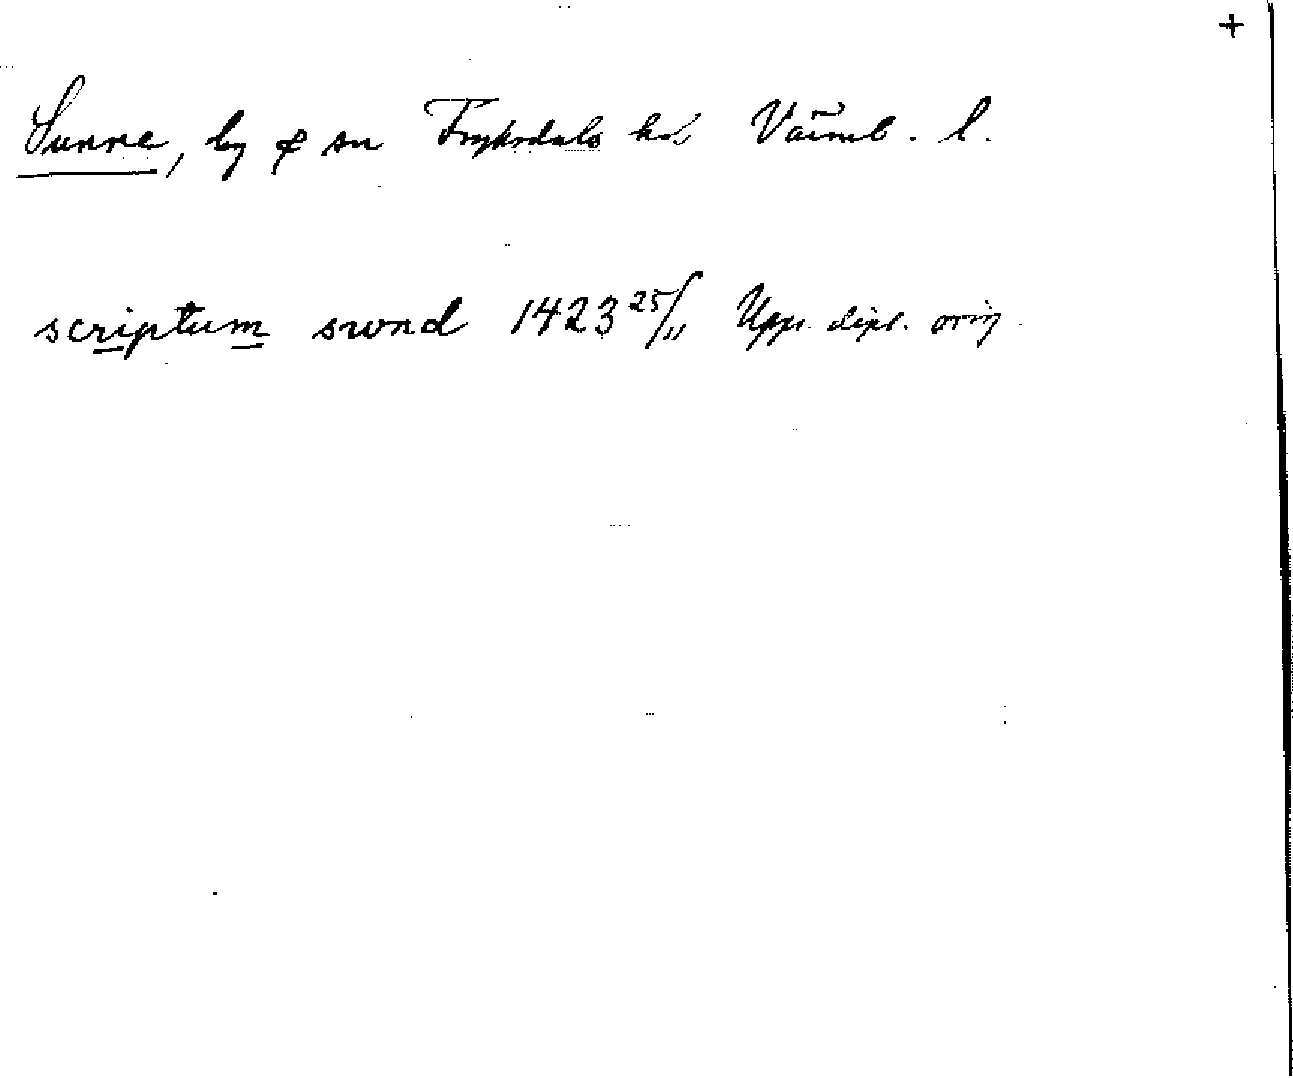 +
Sunne, by o sn Fryksdals hd. Värml. l.
scriptum swnd 1423 25/11 Upps. dipl. orig.